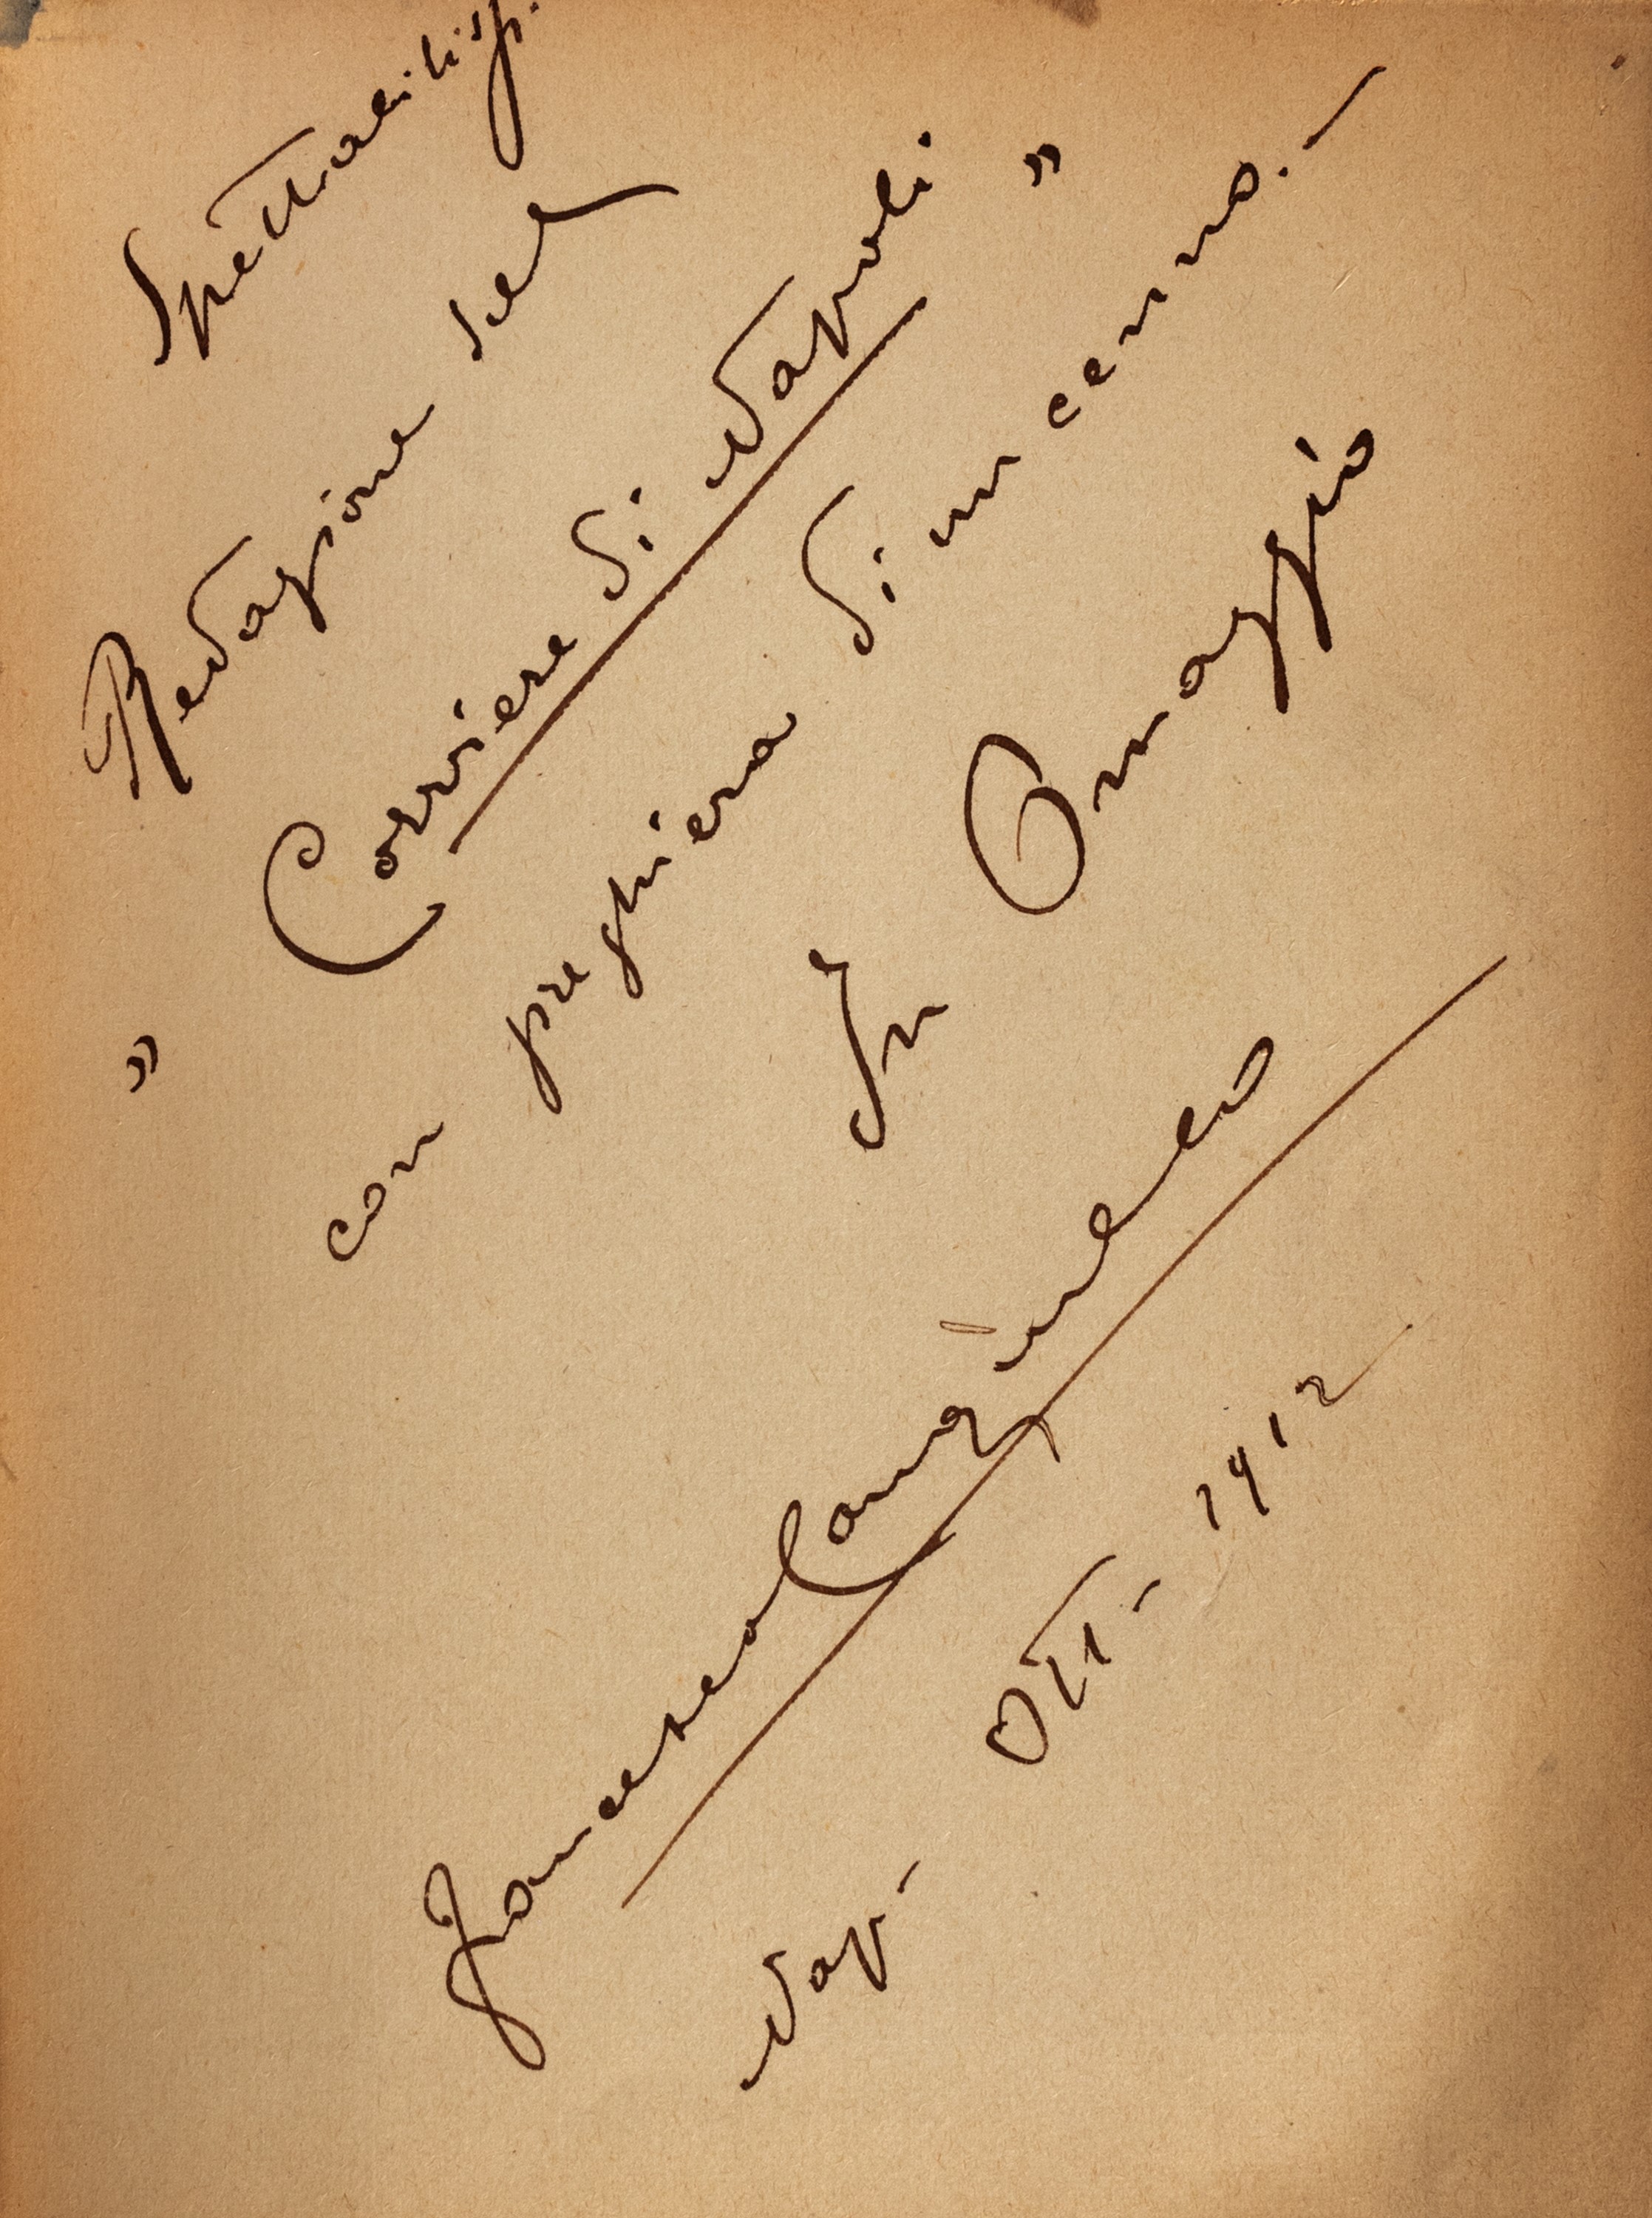 Spettabiliss.
Redazione del
" Corriere di Napoli "
con preghiera di un cenno. —
In Omaggio
Francesco
Nap- Ott- 1912